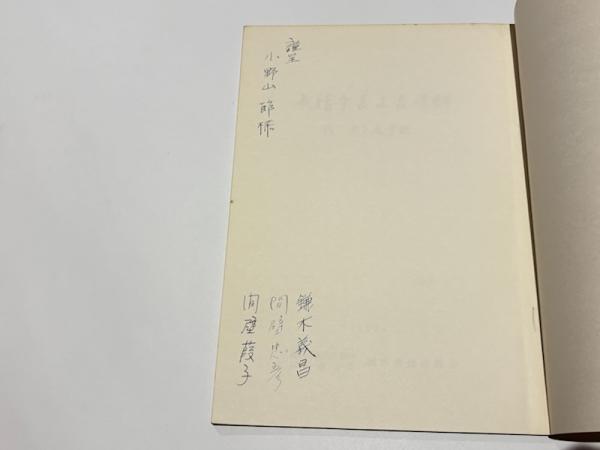 謹呈
小野山 節様
鎌木義昌
間壁忠彦
間壁葭子